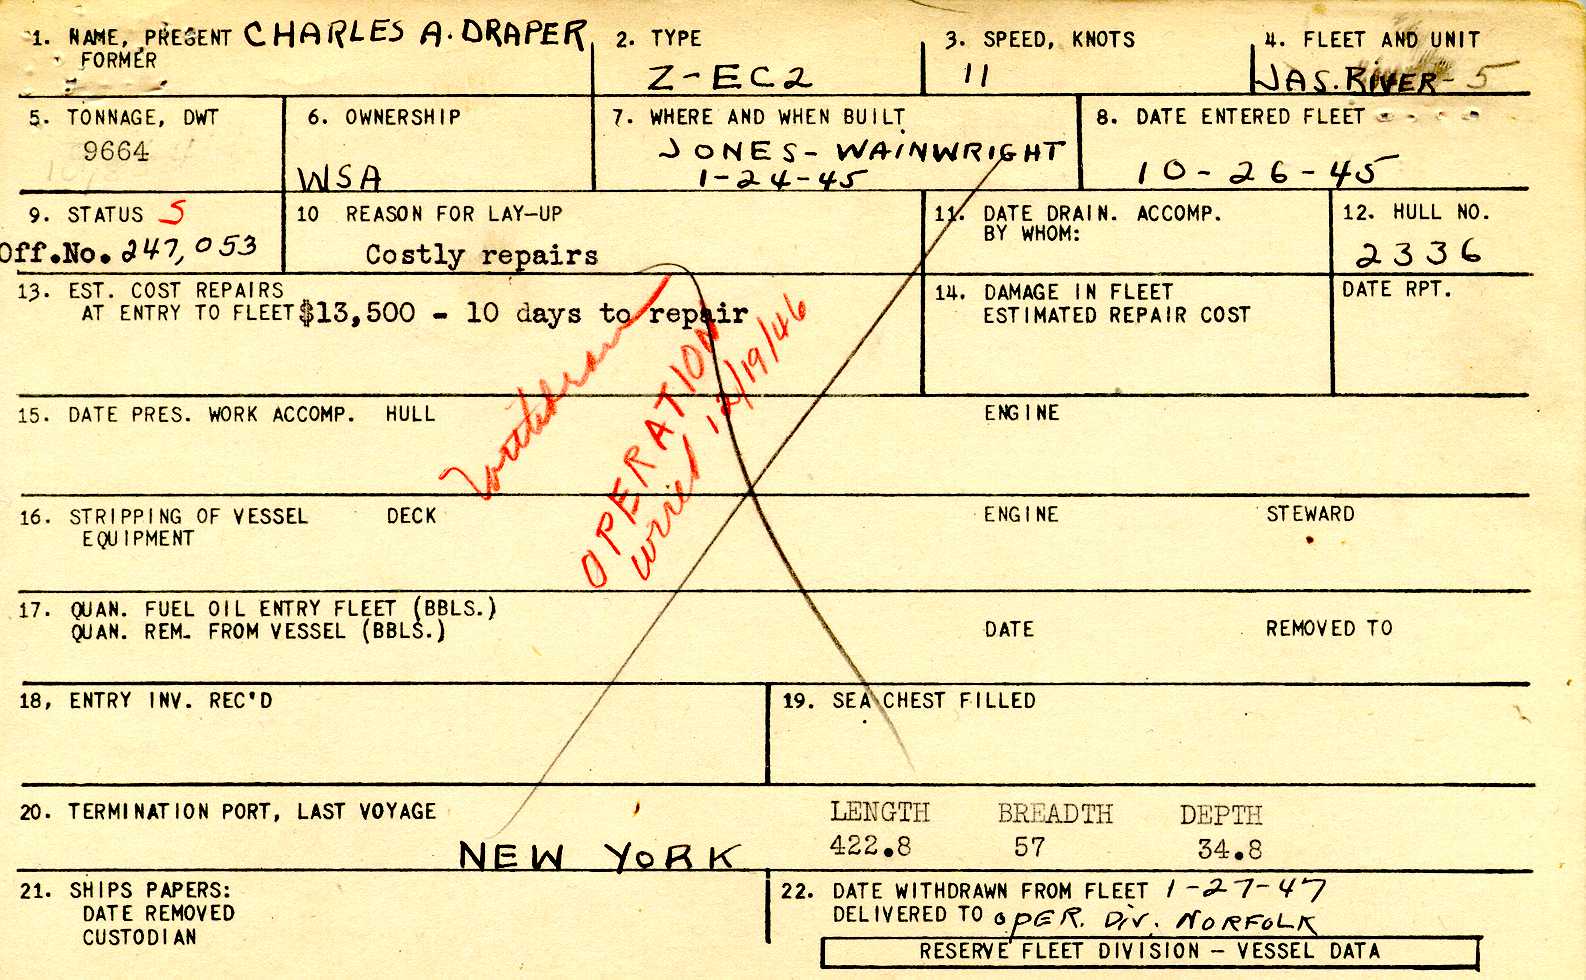 1. NAME, PRESENT CHARLES A. DRAPER
FORMER
2. TYPE
Z-EC2
3. SPEED, KNOTS
11
4. FLEET AND UNIT
JAS. RIVER - 5
5. TONNAGE, DWT
9664
6. OWNERSHIP
WSA
7. WHERE AND WHEN BUILT
JONES - WAINWRIGHT
1-24-45
8. DATE ENTERED FLEET
10-26-45
9. STATUS S
Off.No. 247,053
10 REASON FOR LAY-UP
Costly repairs
11. DATE DRAIN. ACCOMP.
BY WHOM:
12. HULL NO.
2336
13. EST. COST REPAIRS
AT ENTRY TO FLEET $13,500 - 10 days to repair
14. DAMAGE IN FLEET
ESTIMATED REPAIR COST
DATE RPT.
Withdrawn
OPERATION
12/19/46
15. DATE PRES. WORK ACCOMP. HULL
ENGINE
16. STRIPPING OF VESSEL DECK
EQUIPMENT
ENGINE
STEWARD
17. QUAN. FUEL OIL ENTRY FLEET (BBLS.)
QUAN. REM. FROM VESSEL (BBLS.)
DATE
REMOVED TO
18, ENTRY INV. REC'D
19. SEA CHEST FILLED
20. TERMINATION PORT, LAST VOYAGE
NEW YORK
LENGTH BREADTH DEPTH
422.8 57 34.8
21. SHIPS PAPERS:
DATE REMOVED
CUSTODIAN
22. DATE WITHDRAWN FROM FLEET 1-27-47
DELIVERED TO OPER. DIV. NORFOLK
RESERVE FLEET DIVISION - VESSEL DATA